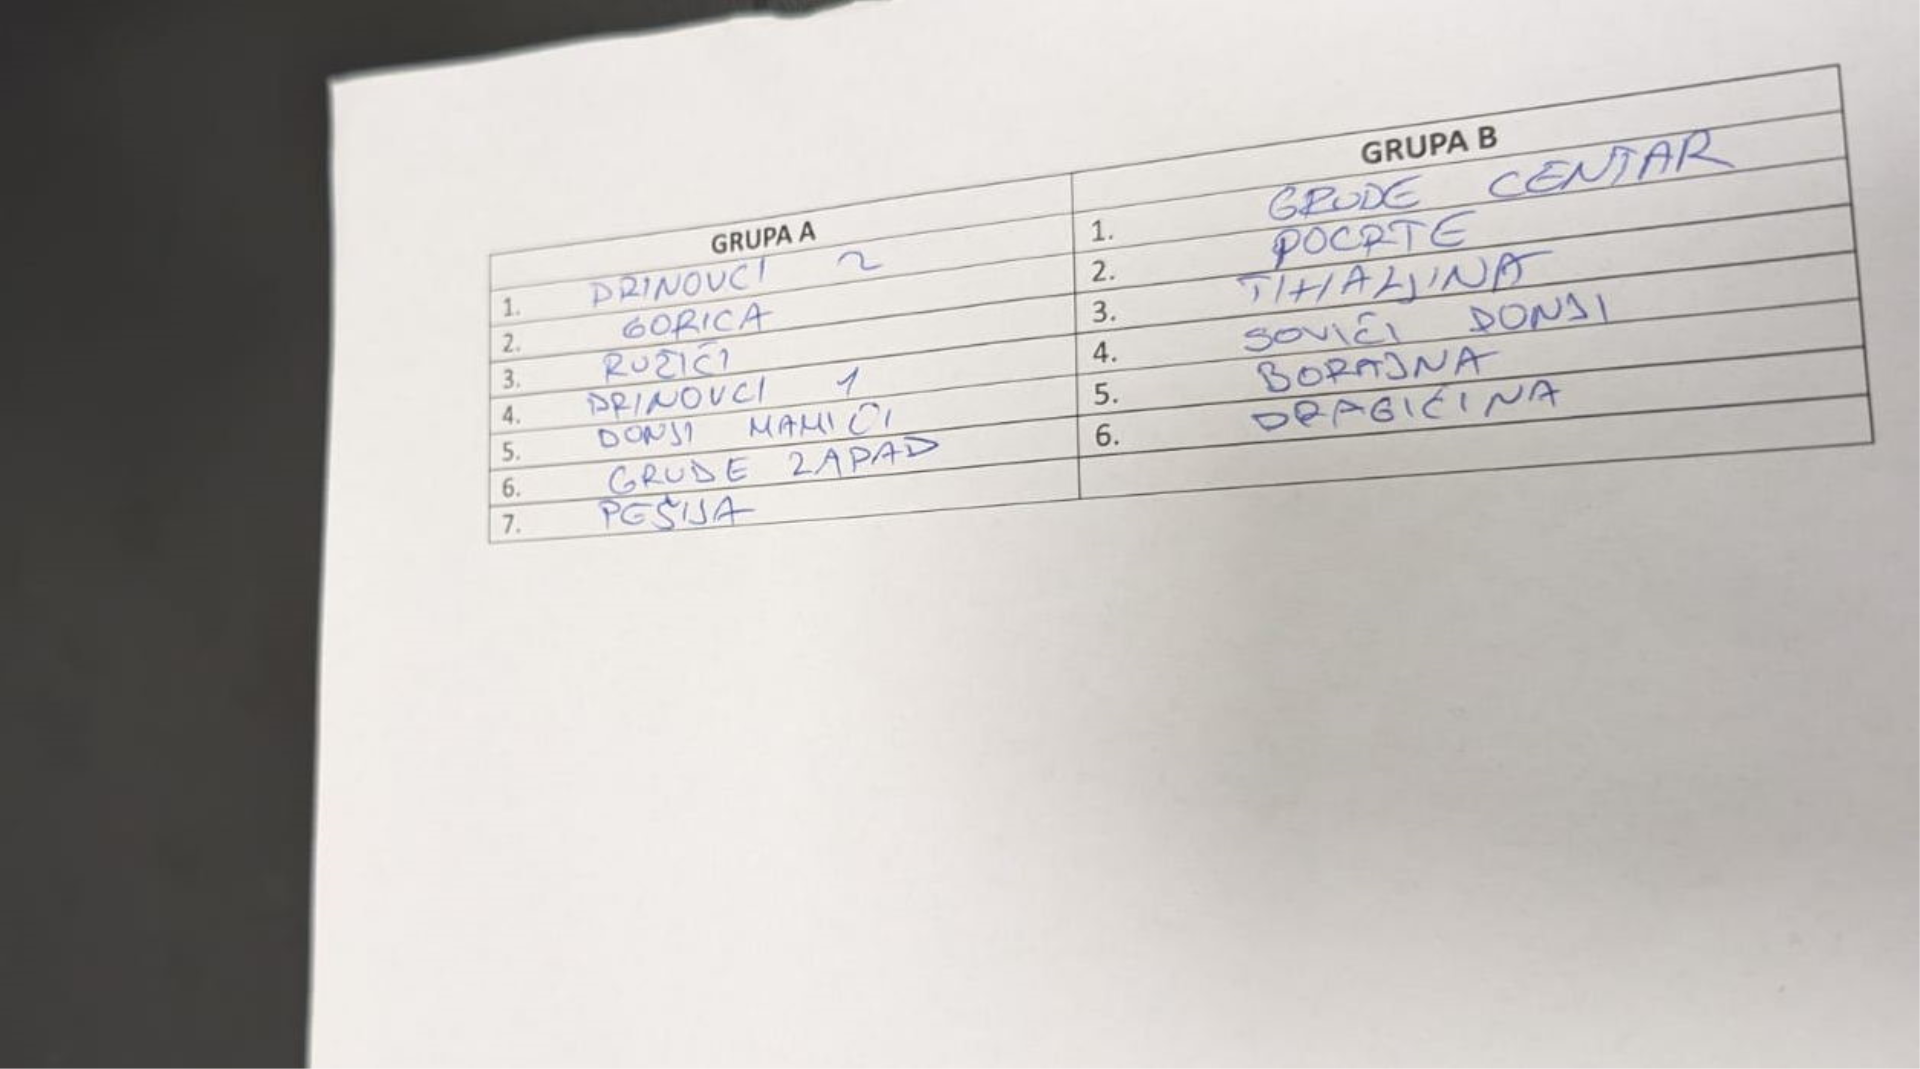 GRUPA A
1. DRINOVCI 2
2. GORICA
3. RUŽIĆI
4. DRINOVCI 1
5. DONJI MAMIĆI
6. GRUDE ZAPAD
7. PEŠIJA
GRUPA B
1. GRUDE CENTAR
2. POCRTE
3. TIHALJINA
4. SOVIĆI DONJI
5. BORAJNA
6. DRAGIĆINA